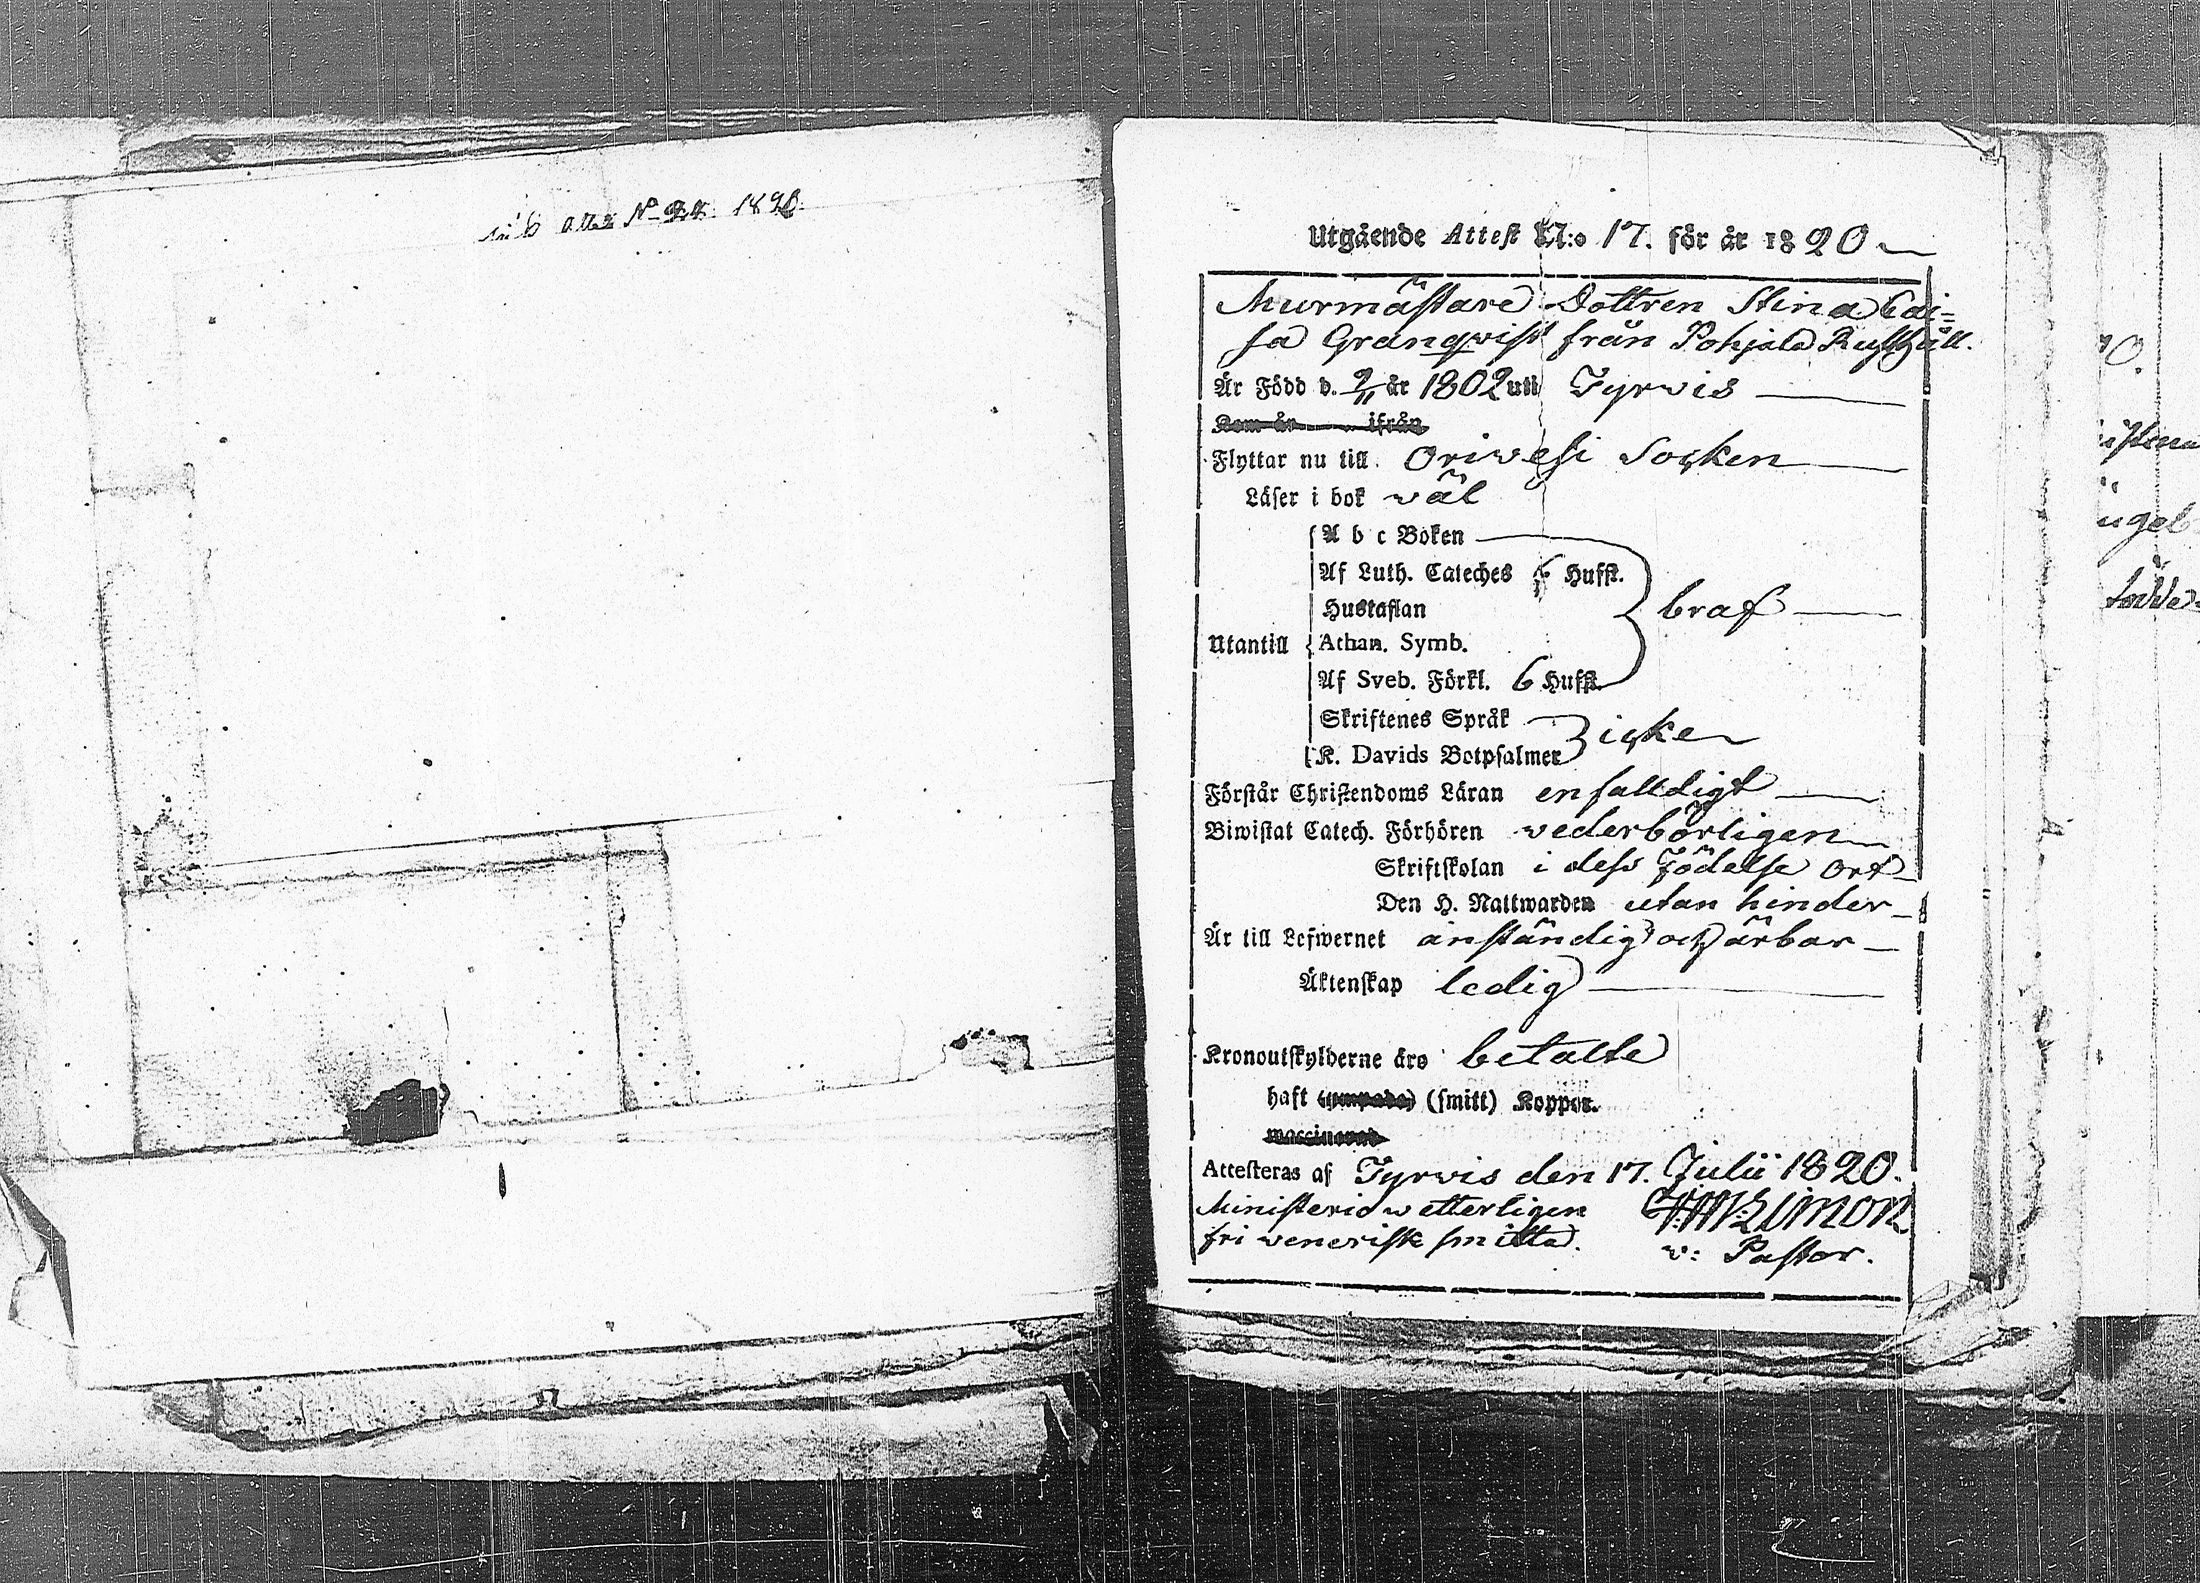 N:o 22. 1820.
Utgående Attest N:o 17. för år 1820
Murmästare Dottren Stina Cai=
sa Granqvist från Pohjala Rusthåll.
Är Född d. 2/11 år 1802 uti Tyrvis
Kom år ifrån
Flyttar nu till Orivesi Socken
Läser i bok wäl
A b c Boken
Af Luth. Cateches 6 Hufst.
Hustaflan
braf
Utantill
Athan. Symb.
Af Sveb. Förkl. 6 Hufst.
Skriftenes Språk
icke
K. Davids Botpsalmer
Förstår Christendoms Läran enfalldigt
Biwistat Catech. Förhören vederbörligen
Skriftskolan i dess Födelse ort
Den H. Nattwarden utan hinder
Är till Lefwernet anständig och ärbar
Äktenskap ledig
Kronoutskylderne äro betalte
haft (ympade) (smitt) Koppor.
waccinerad
Attesteras af Tyrvis den 17. Julii 1820.
Ministerio wetterligen
fri venerisk smitta.
v: Pastor.